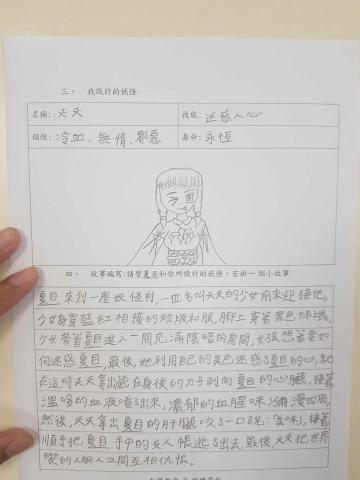 三、 我設計的妖怪
名稱: 夭夭 技能: 迷惑人心
個性: 冷血、無情、邪惡 壽命: 永恆
四、 故事編寫:請替夏目和你所設計的妖怪,安排一個小故事
夏目來到一座妖怪村,一位名叫夭夭的少女前來迎接他。
少女身穿藍紅相接的短版和服,腳上穿著黑色絲襪,
少女帶著夏目進入一間充滿陰暗的房間,女孩想著要如
何迷惑夏目,最後,她利用自己的美色迷惑了夏目的心,就
在這時夭夭拿出藏在身後的刀子刺向夏目的心臟,接著
溫熱的血液噴了出來,濃郁的血腥味瀰漫四周,
然後,夭夭拿出夏目的肝臟咬了一口說:「美味」,接著
順手把夏目手中的友人帳逃了出去,最後,夭夭把世界
變的人與人之間互相仇恨。